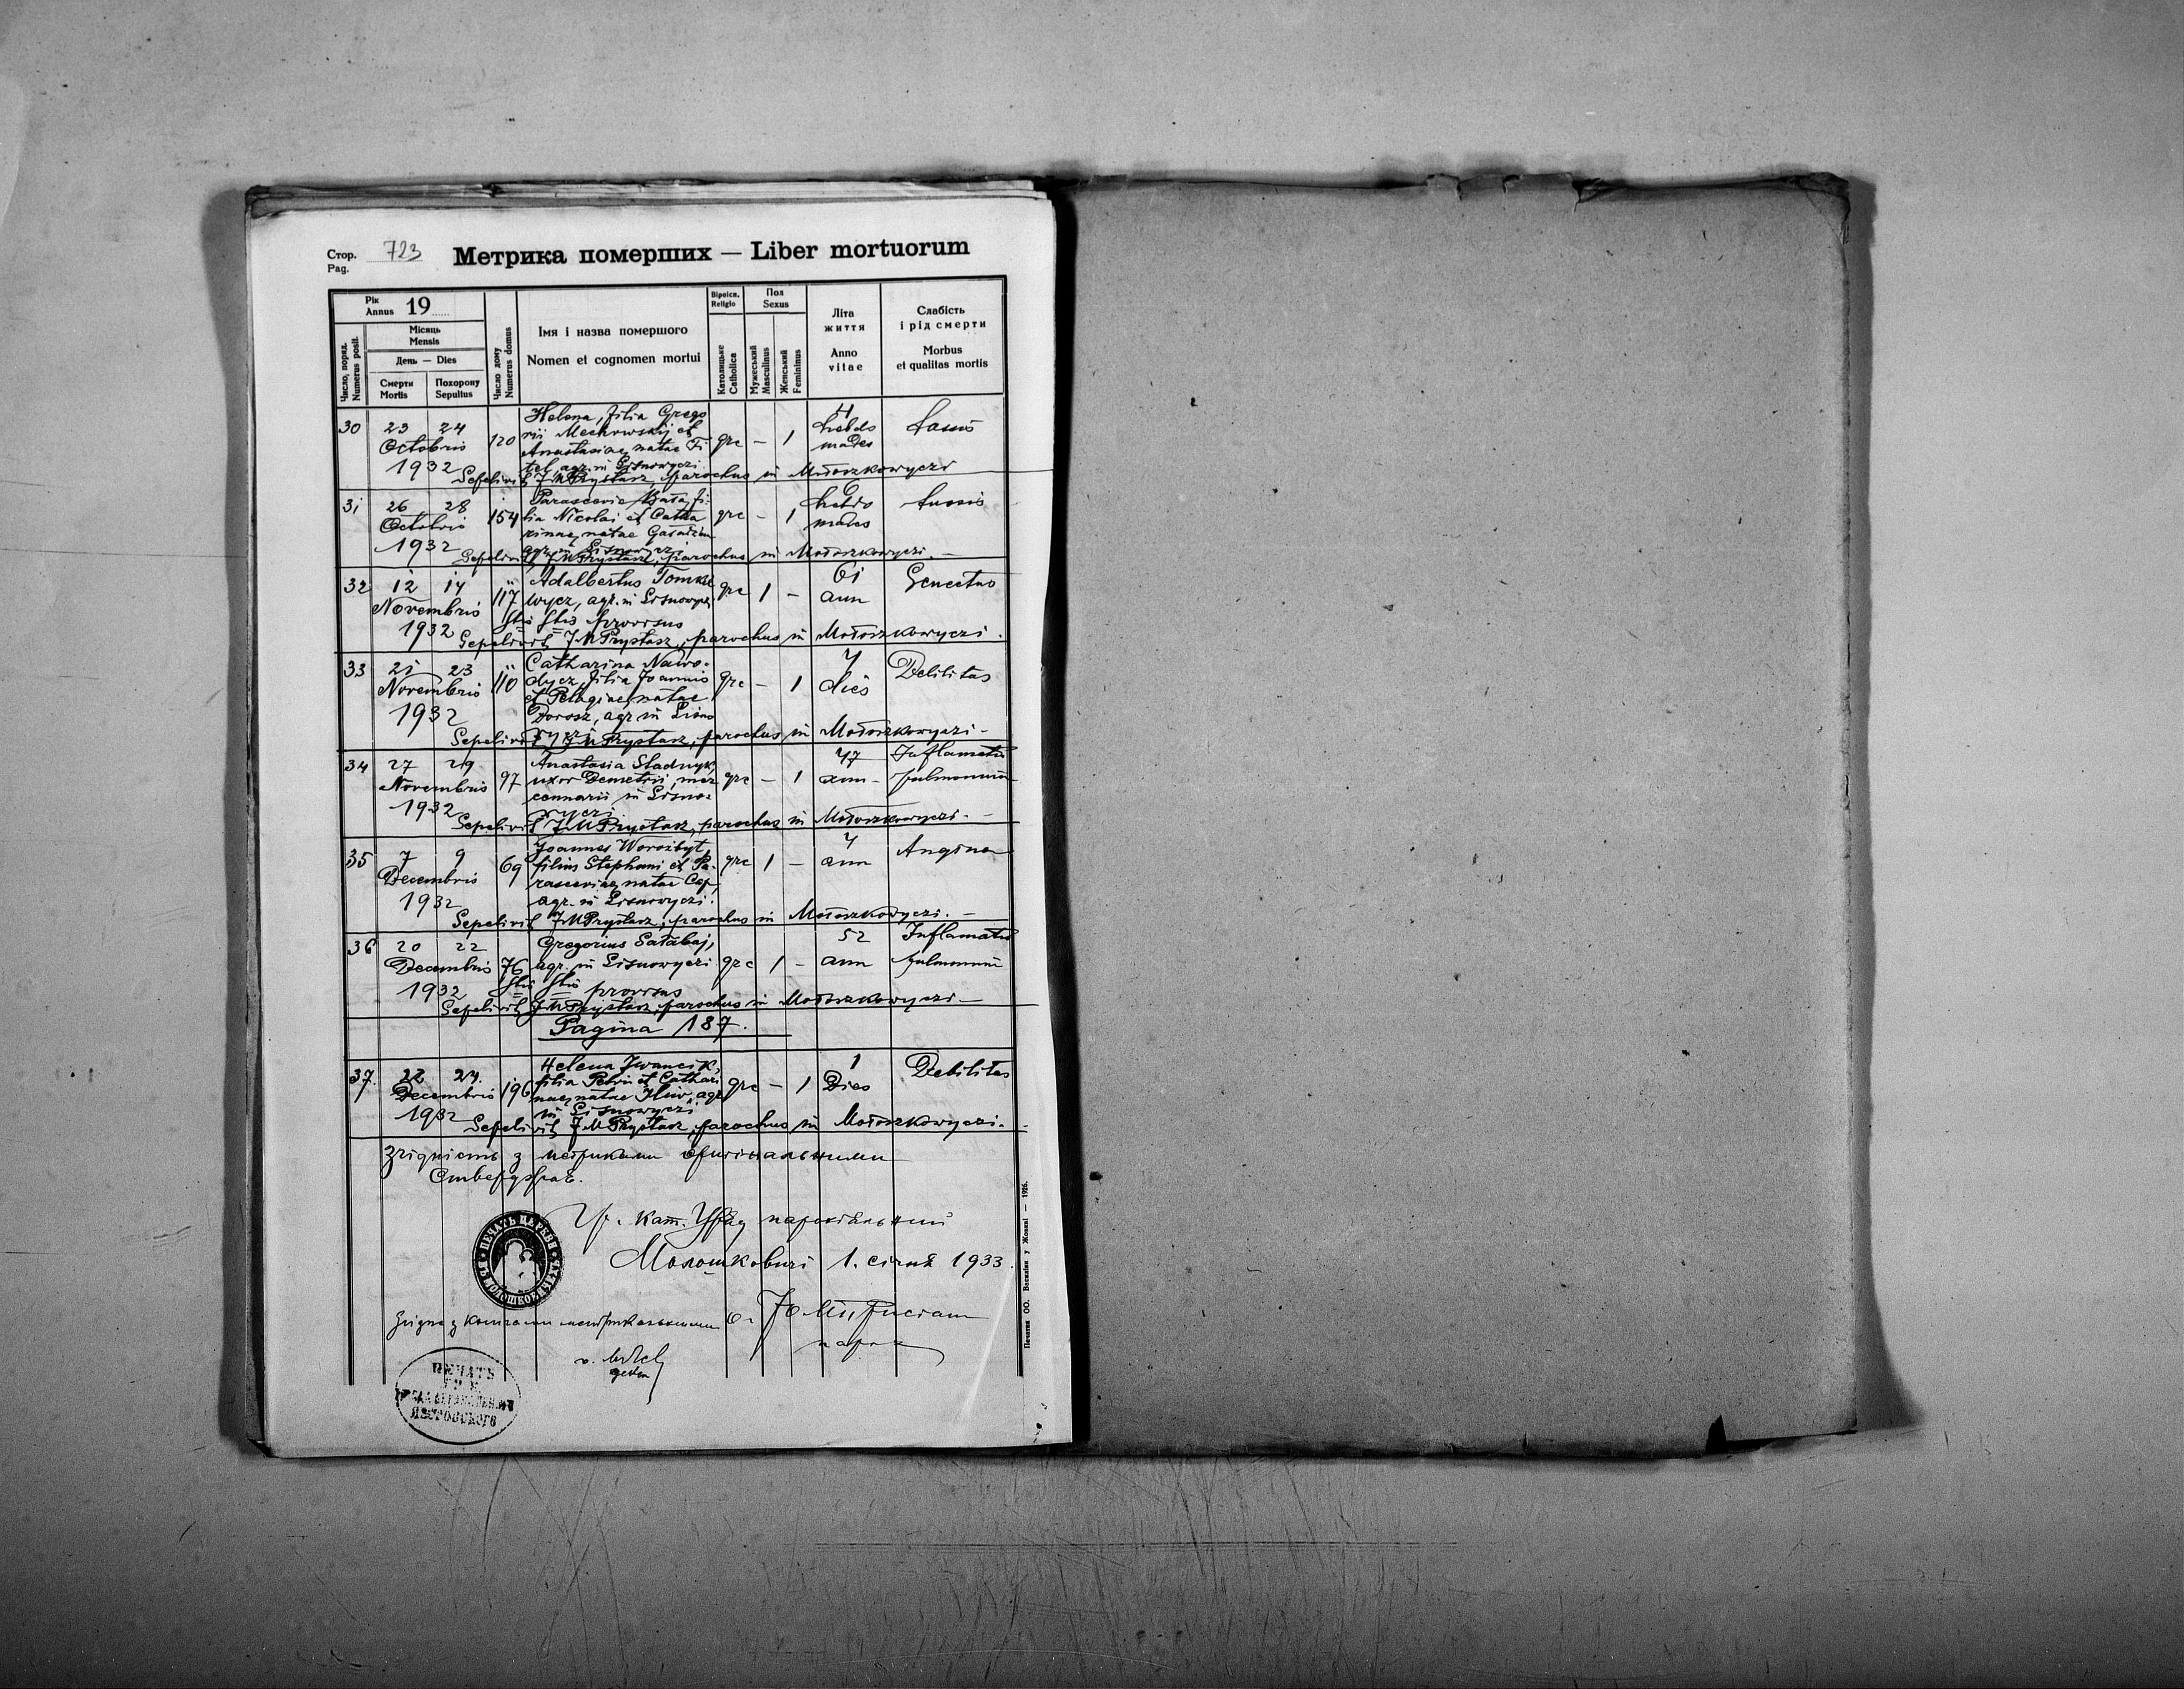 Стор. 723 Метрика померших — Liber mortuorum
Pag.
Рік
Annus 19
Місяць
Mensis
День — Dies
Число, поряд.
Numerus posit.
Смерти
Mortis
Похорону
Sepultus
Число дому
Numerus domus
Імя і назва помершого
Nomen et cognomen mortui
Віроісп.
Religio
Католицьке
Catholica
Пол
Sexus
Мужеський
Masculinus
Женський
Femininus
Літа
життя
Anno
vitae
Слабість
і рід смерти
Morbus
et qualitas mortis
30 23 24 Octobris 1932 120
Helena, filia Grego
rii Mechowskij et
Anastasiae, natae Fi
tel, agr. in Lisnowyczi
grc — 1 4 hebdo
mades
Sepelivit J M Prystasz, parochus in Mołoszkowyczi
31 26 28 Octobris 1932 154
Parascevia, fi-
lia Nicolai et Catha
rinae, natae
agr. in Lisnowyczi
grc — 1 6 hebdo
mades tussis
Sepelivit J M Prystasz, parochus in Mołoszkowyczi. —
32 12 14 Novembris 1932 117
Adalbertus Tomke
wycz, agr. in Lisnowycz
provisus
grc 1 — 61
ann Senectus
Sepelivit J M Prystasz, parochus in Mołoszkowyczi.
33 21 23 Novembris 1932 110
Catharina Nawo-
dycz, filia Joannis
et Pelagiae, natae
Dorosz, agr. in Lisno
wyczi
grc — 1 7
dies Debilitas
Sepelivit J M Prystasz, parochus in Mołoszkowyczi —
34 27 29 Novembris 1932 97
Anastasia Stadnyk,
uxor Demetrii, mer
cennarii in Lisno-
wyczi
grc — 1 47
ann — Inflamatio
pulmonum
Sepelivit J M Prystasz, parochus in Mołoszkowyczi. —
35 7 9 Decembris 1932 69
Joannes Worożbyt,
filius Stephani et Pa-
rasceviae, natae Cap,
agr. in Lisnowyczi.
grc 1 — 4
ann Angina
Sepelivit J M Prystasz, parochus in Mołoszkowyczi. —
36 20 22 Decembris 1932 76
Gregorius Sałabaj,
agr. in Lisnowyczi
provisus
grc 1 — 52
ann Inflamatio
pulmonum
Sepelivit J M Prystasz, parochus in Mołoszkowyczi —
Pagina 187.
37. 22 24. Decembris 1932 196
Helena Iwancik,
filia Petri et Cathari
nae, natae Ilkiw, agr
in Lisnowyczi
grc — 1 1
Dies Debilitas
Sepelivit J M Prystasz, parochus in Mołoszkowyczi. —
Згідність з метриками оригінальними
Гр. кат. Уряд парохіяльний
Молошковичі 1. січня 1933.
ПЕЧАТЬ ЦЕРКВИ
парох
ПЕЧАТЬ
Печатня ОО. Василіян у Жовкві — 1926.